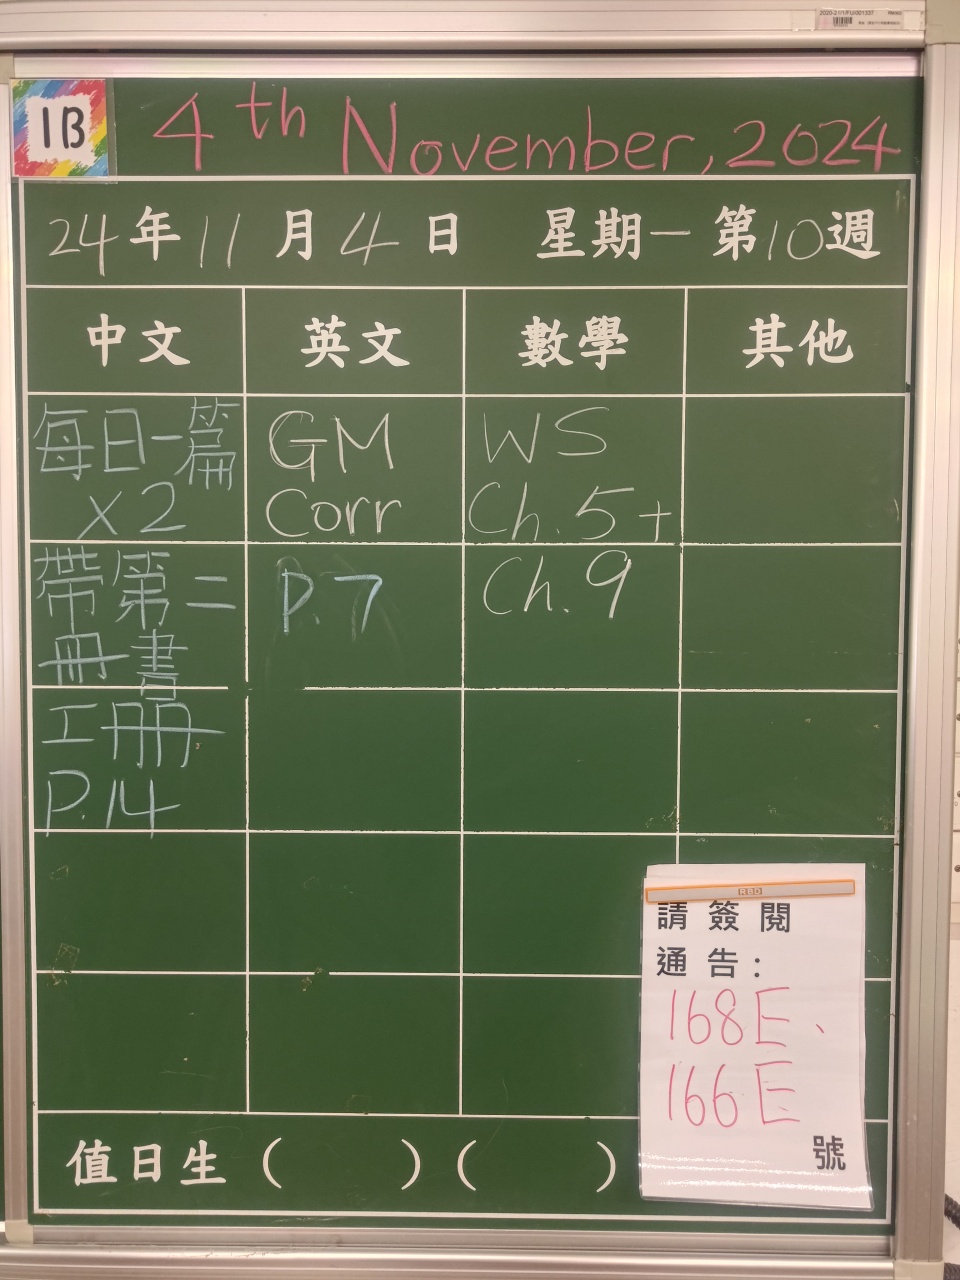 2020-21/1/FU/001337
1B
4th November, 2024
24年11月4日 星期一 第10週
中文 英文 數學 其他
每日一篇
X2
GM
Corr
WS
Ch. 5 +
帶第二
冊書
P. 7
Ch. 9
工冊
P. 14
RBD
請簽閱
通告:
168E、
166E
號
值日生 ( ) ( )